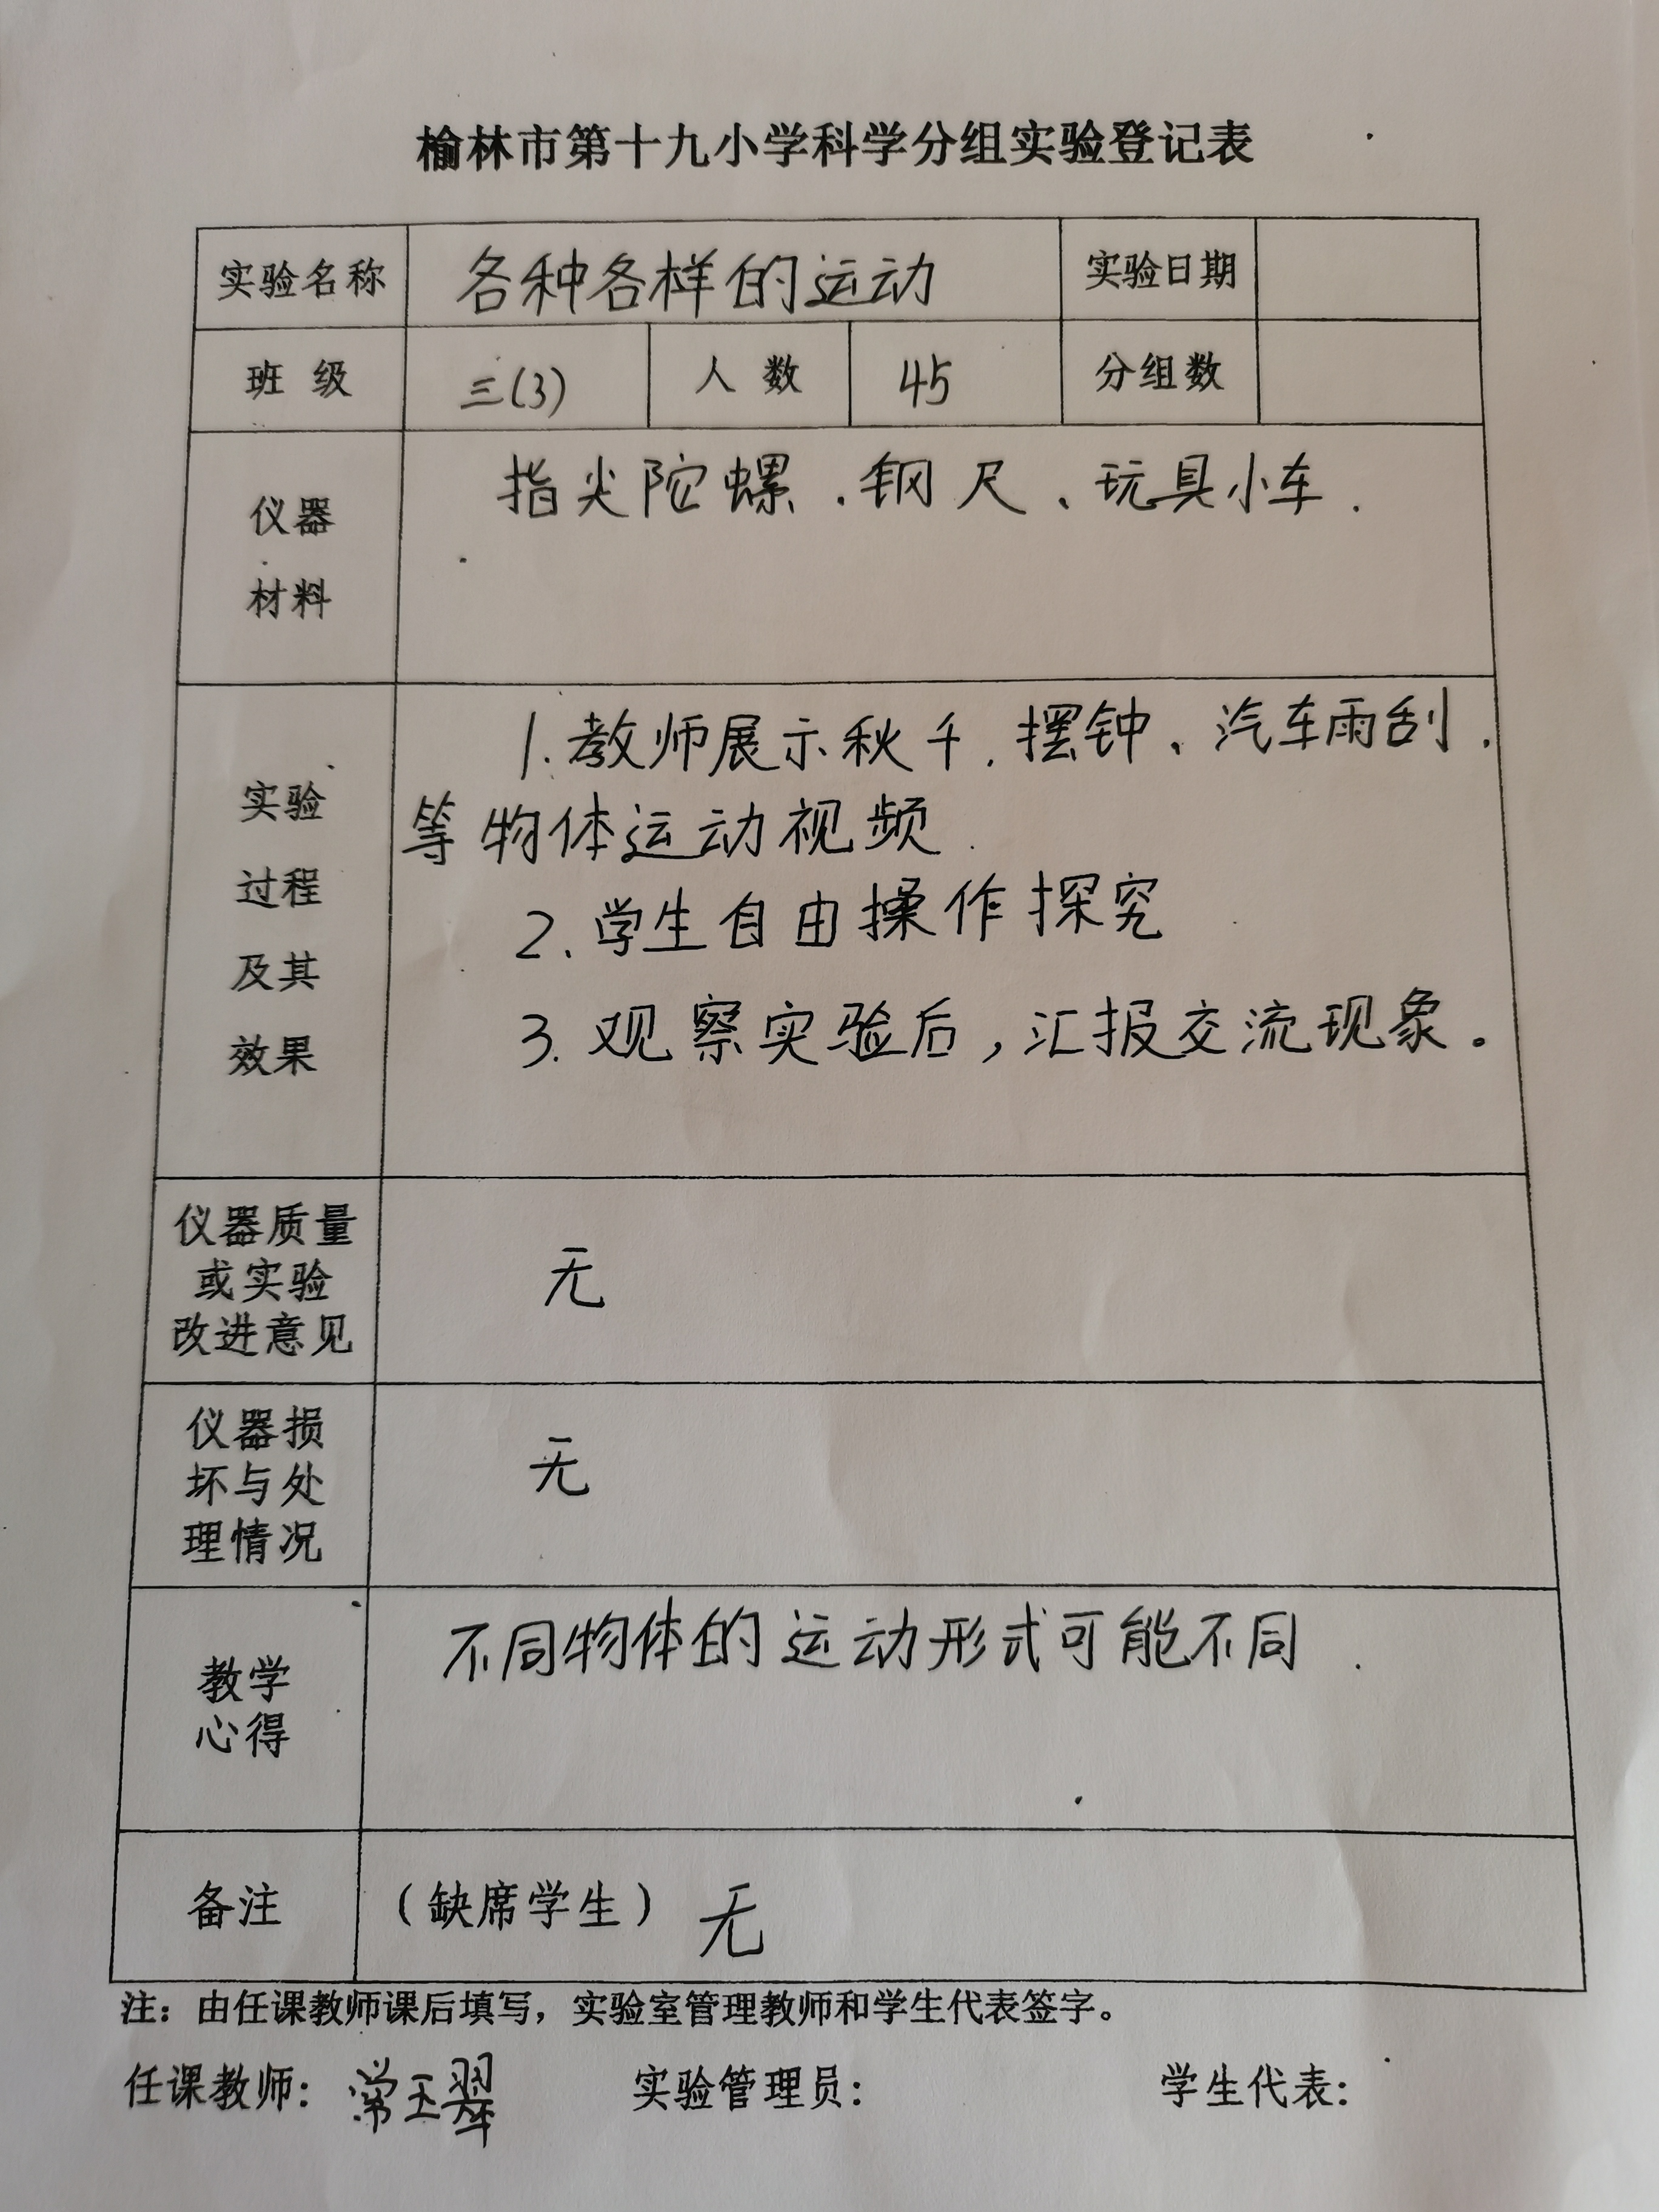 榆林市第十九小学科学分组实验登记表
实验名称 各种各样的运动 实验日期
班 级 三(3) 人 数 45 分组数
指尖陀螺、钢尺、玩具小车.
仪器
材料
1.教师展示秋千、摆钟、汽车雨刮、
等物体运动视频.
2.学生自由操作探究
3.观察实验后,汇报交流现象。
实验
过程
及其
效果
仪器质量
或实验
改进意见
无
仪器损
坏与处
理情况
无
不同物体的运动形式可能不同.
教学
心得
备注 (缺席学生) 无
注：由任课教师课后填写，实验室管理教师和学生代表签字。
任课教师： 常玉翠 实验管理员： 学生代表：